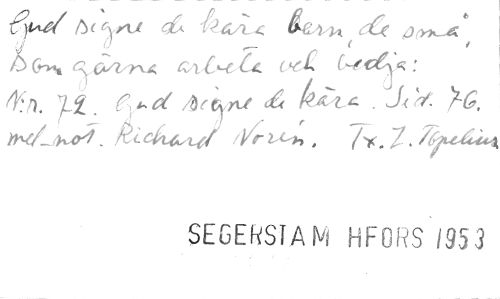 Gud signe de kära barn, de små,
som gärna arbeta och bedja:
N:r. 72. Gud signe de kära. Sid. 76.
mel-not. Richard Norén. Tx. Z. Topelius
SEGERSTAM HFORS 1953